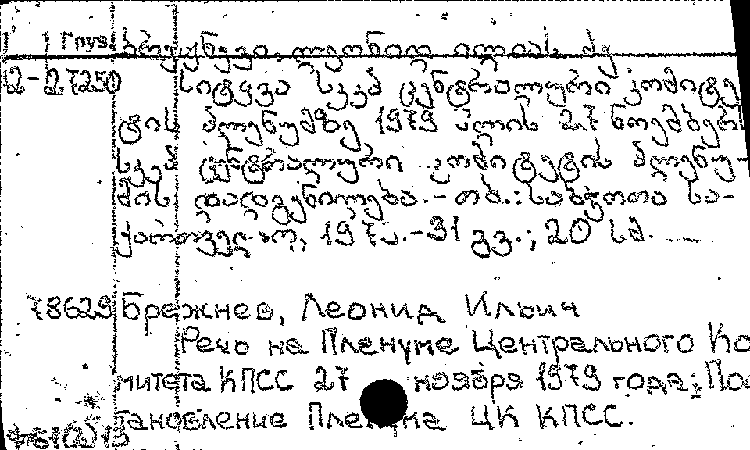 1 1 Груз. ბრეჟნევი, ლეონიდ ილიას ძე
12-27250 სიტყვა სკკპ ცენტრალური კომიტე
ტის პლენუმზე 1979 წლის 27 ნოემბერს
სკკპ ცენტრალური კომიტეტის პლენუ-
მის დადგენილება.-თბ.: საბჭოთა სა-
ქართველო, 1979.-31 გვ.; 20 სმ.
78629 Брежнев, Леонид Ильич
Речь на Пленуме Центрального Ко
митета КПСС 27 ноября 1979 года; Пос
тановление Пленума ЦК КПСС.